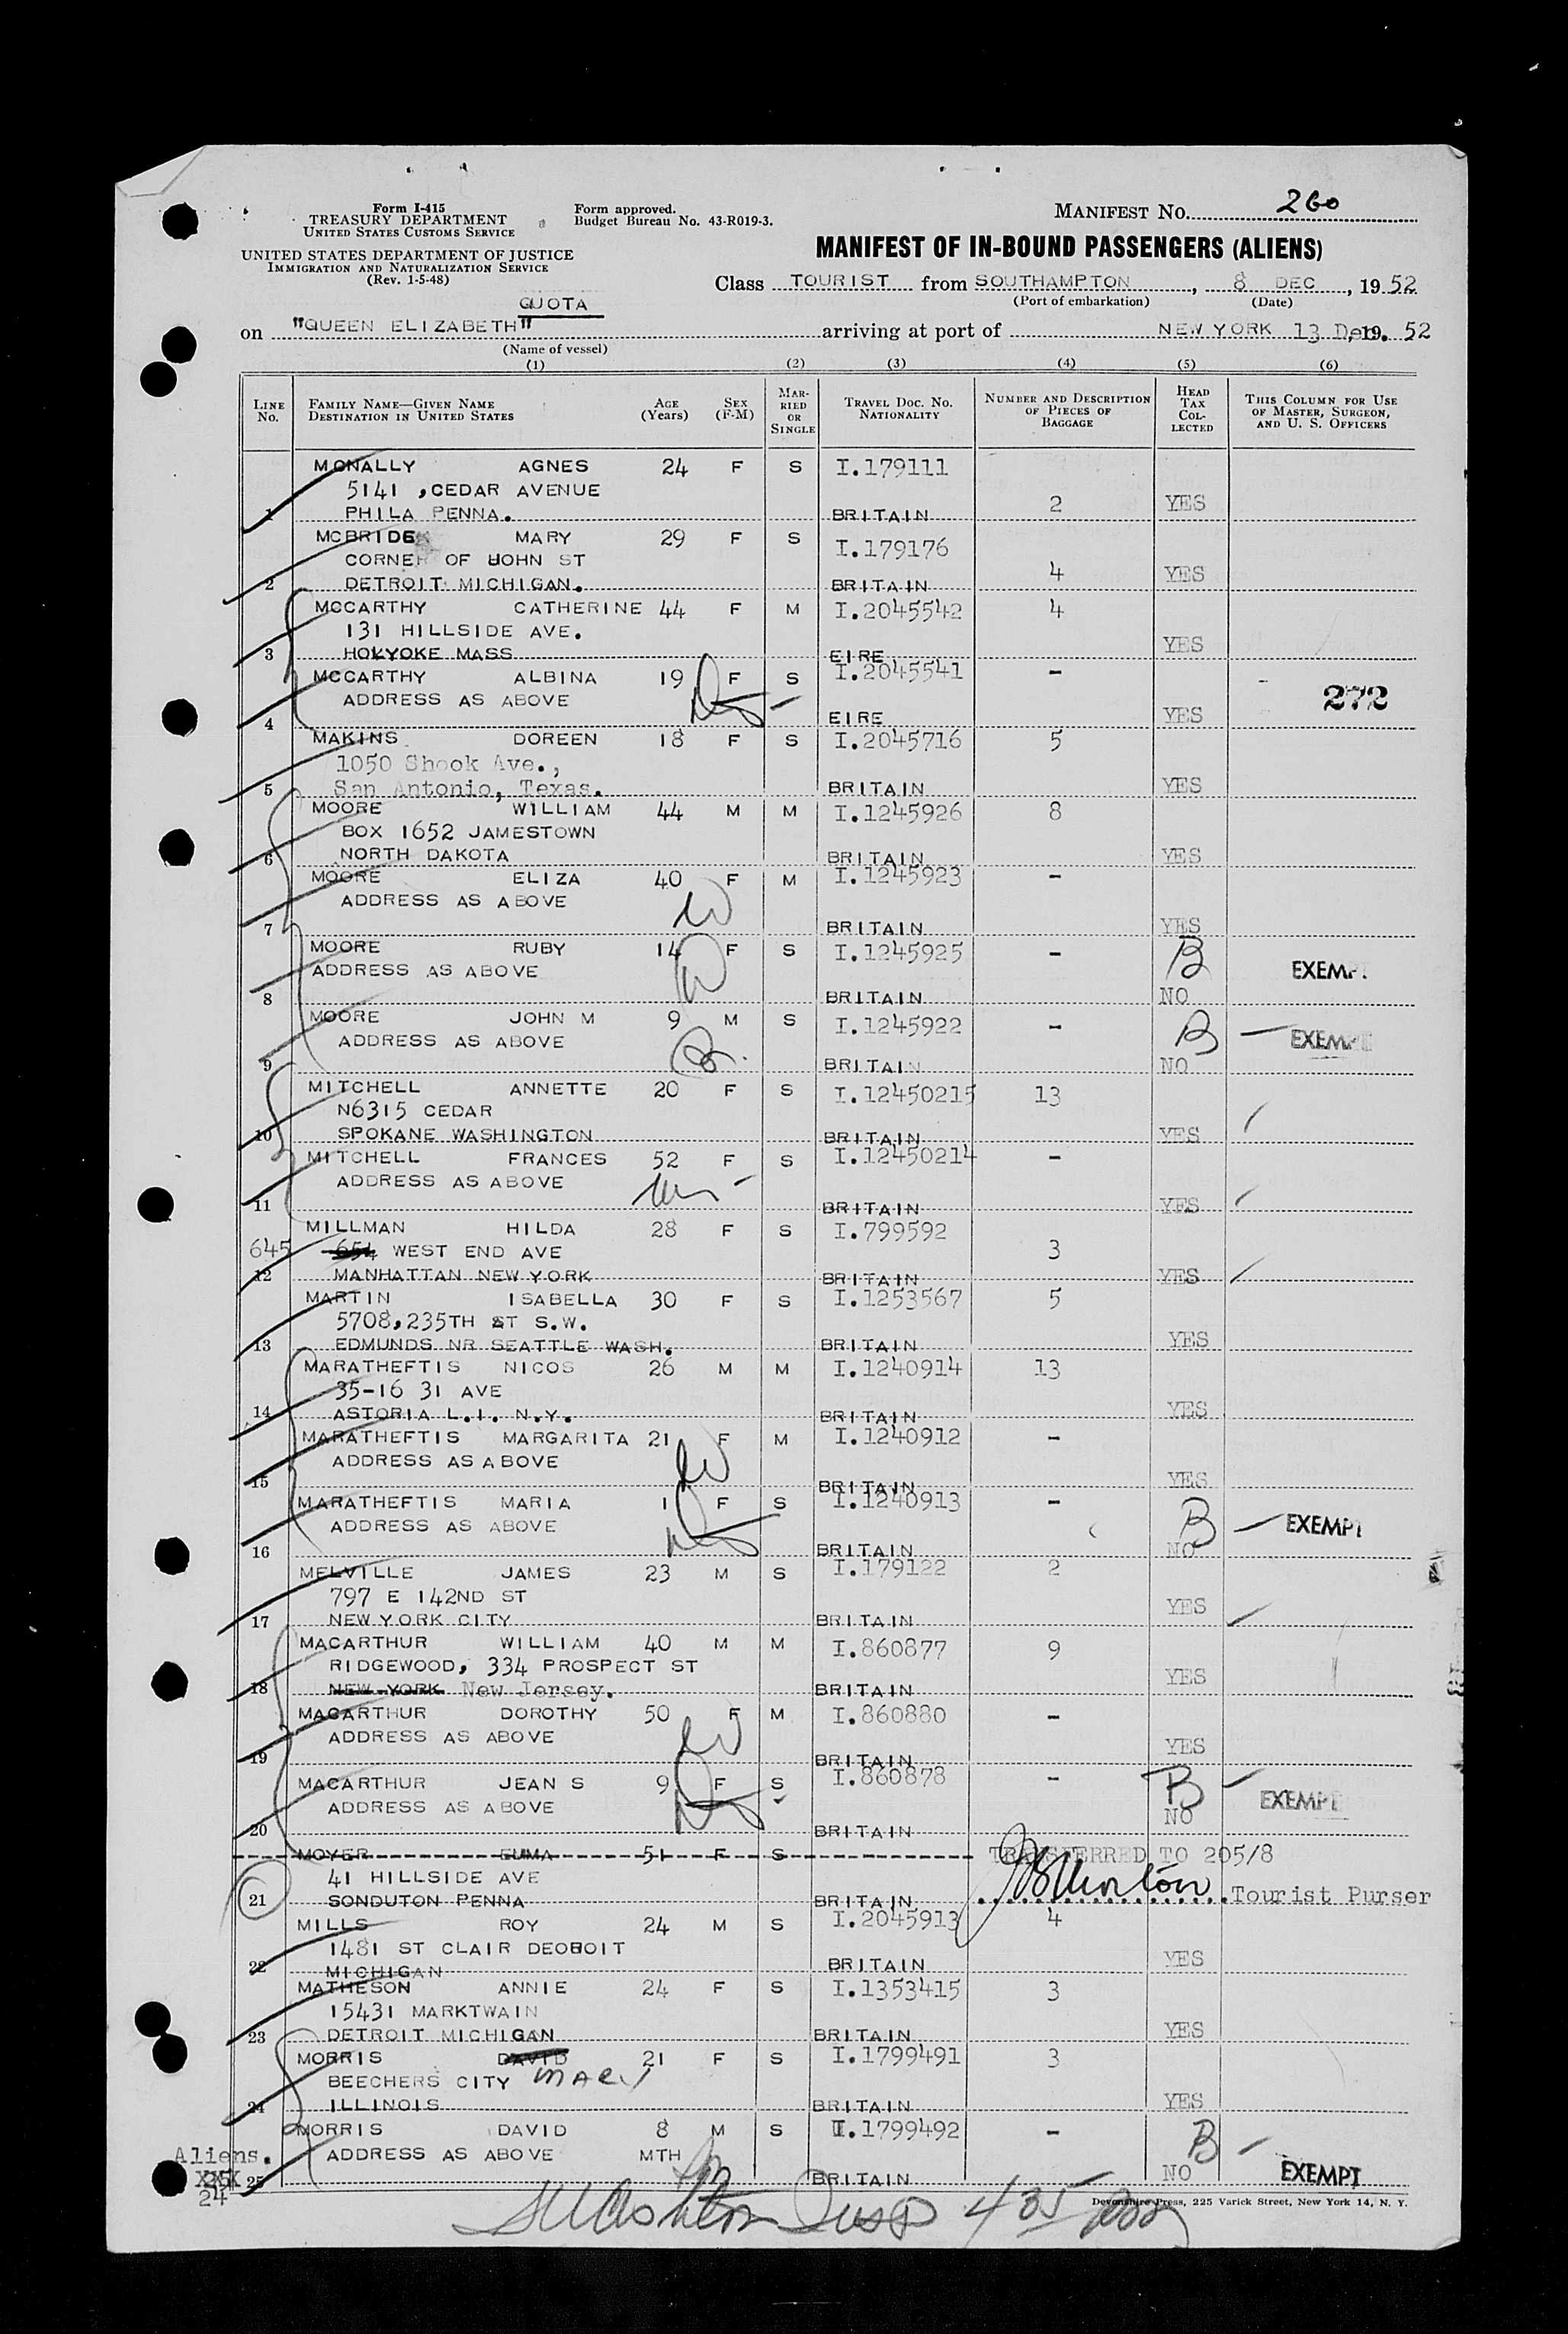 Form I-415
TREASURY DEPARTMENT
UNITED STATES CUSTOMS SERVICE
Form approved.
Budget Bureau No. 43-R019-3.
MANIFEST No. 260
UNITED STATES DEPARTMENT OF JUSTICE
IMMIGRATION AND NATURALIZATION SERVICE
(Rev. 1-5-48)
MANIFEST OF IN-BOUND PASSENGERS (ALIENS)
Class TOURIST from SOUTHAMPTON, 8 DEC, 1952
(Port of embarkation) (Date)
QUOTA
on "QUEEN ELIZABETH" arriving at port of NEW YORK 13 Dec. 19 52
(Name of vessel)
(1) (2) (3) (4) (5) (6)
LINE No. FAMILY NAME—GIVEN NAME DESTINATION IN UNITED STATES AGE (Years) SEX (F-M) MARRIED OR SINGLE TRAVEL DOC. No. NATIONALITY NUMBER AND DESCRIPTION OF PIECES OF BAGGAGE HEAD TAX COLLECTED THIS COLUMN FOR USE OF MASTER, SURGEON, AND U. S. OFFICERS
MCNALLY AGNES 24 F S I.179111
5141 ,CEDAR AVENUE 2 YES
1 PHILA PENNA. BRITAIN
MCBRIDE MARY 29 F S I.179176
CORNER OF JOHN ST 4 YES
2 DETROIT MICHIGAN. BRITAIN
MCCARTHY CATHERINE 44 F M I.2045542 4
131 HILLSIDE AVE. YES
3 HOLYOKE MASS EIRE
MCCARTHY ALBINA 19 F S I.2045541 -
ADDRESS AS ABOVE 272
4 EIRE YES
MAKINS DOREEN 18 F S I.2045716 5
1050 Shook Ave.,
5 San Antonio, Texas. BRITAIN YES
MOORE WILLIAM 44 M M I.1245926 8
BOX 1652 JAMESTOWN
6 NORTH DAKOTA BRITAIN YES
MOORE ELIZA 40 F M I.1245923 -
ADDRESS AS ABOVE
7 BRITAIN YES
MOORE RUBY 14 F S I.1245925 - B
ADDRESS AS ABOVE EXEMPT
8 BRITAIN NO
MOORE JOHN M 9 M S I.1245922 - B
ADDRESS AS ABOVE EXEMPT
9 BRITAIN NO
MITCHELL ANNETTE 20 F S I.12450215 13
N6315 CEDAR
10 SPOKANE WASHINGTON BRITAIN YES
MITCHELL FRANCES 52 F S I.12450214 -
ADDRESS AS ABOVE
11 BRITAIN YES
MILLMAN HILDA 28 F S I.799592
645 654 WEST END AVE 3
12 MANHATTAN NEW YORK BRITAIN YES
MARTIN ISABELLA 30 F S I.1253567 5
5708,235TH ST S.W.
13 EDMUNDS NR SEATTLE WASH. BRITAIN YES
MARATHEFTIS NICOS 26 M M I.1240914 13
35-16 31 AVE
14 ASTORIA L.I. N.Y. BRITAIN YES
MARATHEFTIS MARGARITA 21 F M I.1240912 -
ADDRESS AS ABOVE
15 BRITAIN YES
MARATHEFTIS MARIA 1 F S I.1240913 - B
ADDRESS AS ABOVE EXEMPT
16 BRITAIN NO
MELVILLE JAMES 23 M S I.179122 2
797 E 142ND ST YES
17 NEW YORK CITY BRITAIN
MACARTHUR WILLIAM 40 M M I.860877 9
RIDGEWOOD, 334 PROSPECT ST YES
18 NEW YORK New Jersey. BRITAIN
MACARTHUR DOROTHY 50 F M I.860880 -
ADDRESS AS ABOVE YES
19 BRITAIN
MACARTHUR JEAN S 9 F S I.860878 - B
ADDRESS AS ABOVE NO EXEMPT
20 BRITAIN
MOYER EUMA 51 F S TRANSFERRED TO 205/8
41 HILLSIDE AVE
21 SONDUTON PENNA BRITAIN Tourist Purser
MILLS ROY 24 M S I.2045913 4
1481 ST CLAIR DEOBOIT YES
22 MICHIGAN BRITAIN
MATHESON ANNIE 24 F S I.1353415 3
15431 MARKTWAIN
23 DETROIT MICHIGAN BRITAIN YES
MORRIS DAVID 21 F S I.1799491 3
BEECHERS CITY MARY
24 ILLINOIS BRITAIN YES
MORRIS DAVID 8 M S I.1799492 - B
Aliens. ADDRESS AS ABOVE MTH
25 BRITAIN NO EXEMPT
24
Devonshire Press, 225 Varick Street, New York 14, N. Y.